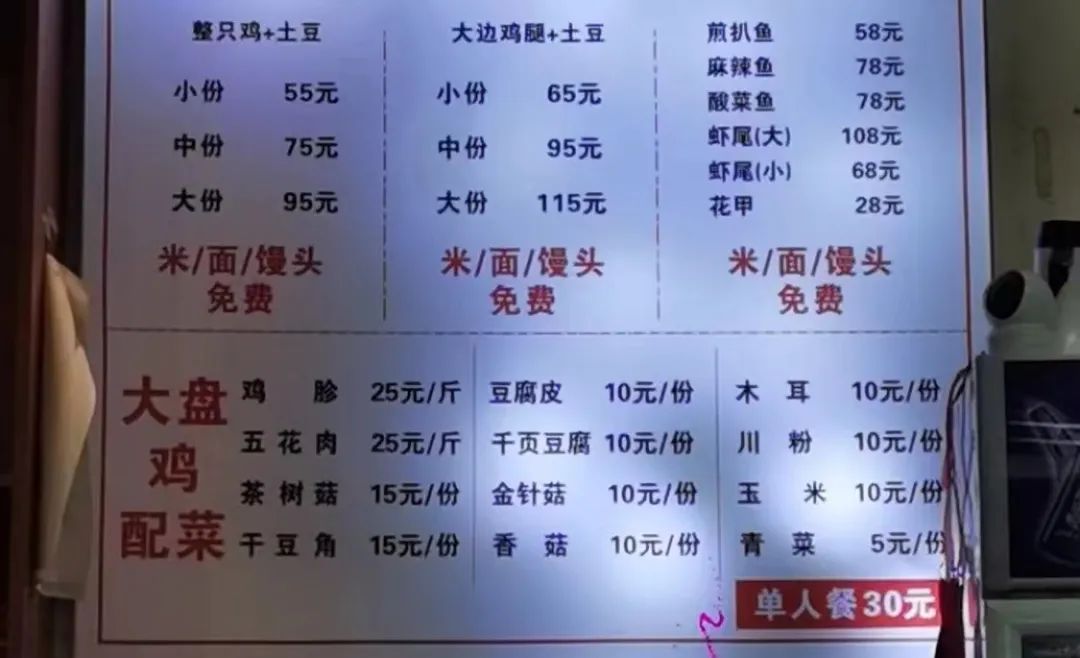 整只鸡+土豆
小份 55元
中份 75元
大份 95元
米/面/馒头
免费
大边鸡腿+土豆
小份 65元
中份 95元
大份 115元
米/面/馒头
免费
煎扒鱼 58元
麻辣鱼 78元
酸菜鱼 78元
虾尾(大) 108元
虾尾(小) 68元
花甲 28元
米/面/馒头
免费
大盘
鸡
配菜
鸡胗 25元/斤
五花肉 25元/斤
茶树菇 15元/份
干豆角 15元/份
豆腐皮 10元/份
千页豆腐 10元/份
金针菇 10元/份
香菇 10元/份
木耳 10元/份
川粉 10元/份
玉米 10元/份
青菜 5元/份
单人餐30元